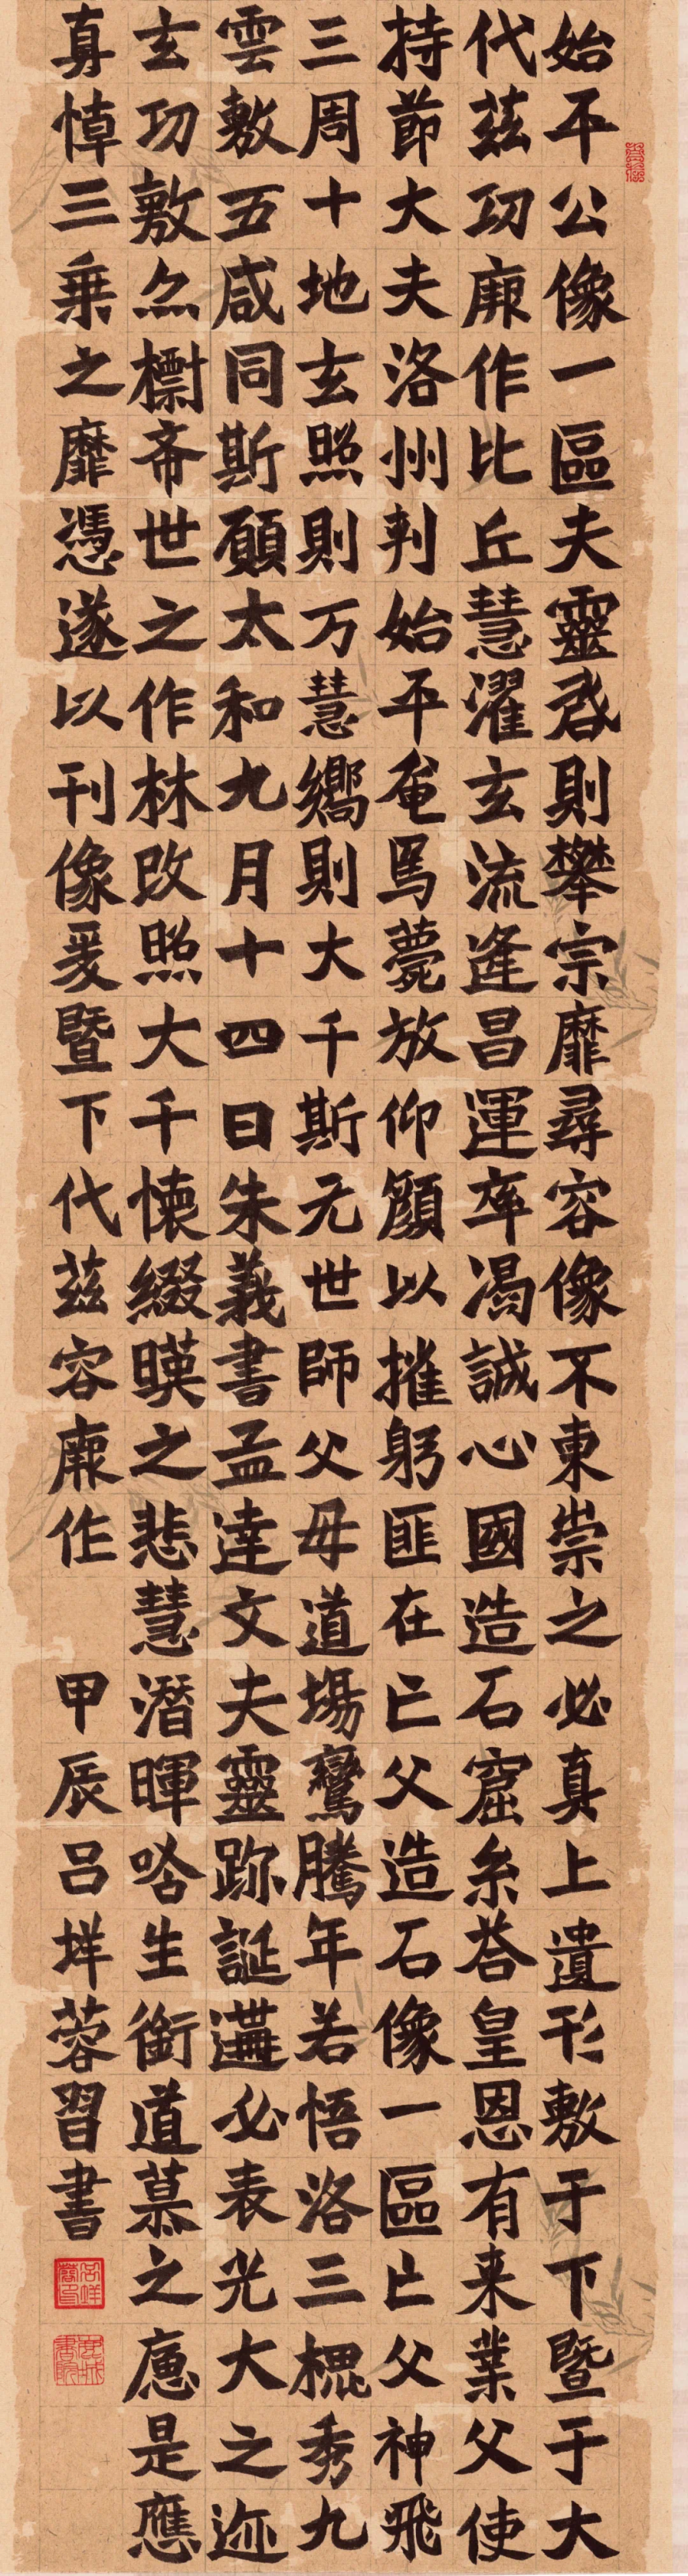 始平公像一區夫靈启則攀宗靡尋容像不東崇之必真上遺形敷于下暨于大
代茲功厥作比丘慧濯玄流逢昌運率渴誠心國造石窟糸荅皇恩有来業父使
持節大夫洛州刺始平奄焉薨放仰顏以摧躬匪在亡父造石像一區亡父神飛
三周十地玄照則万慧嚮則大千斯无世師父母道場鸞騰年若悟洛三槐秀九
雲敷五咸同斯願太和九月十四日朱義書孟達文夫靈跡誕遘必表光大之迹
玄功敷亦標希世之作林改照大千懐綴暎之悲慧潛暉唅生銜道慕之應是應
真悼三乗之靡憑遂以刊像爰暨下代茲容厥作
甲辰吕垟蓉習書